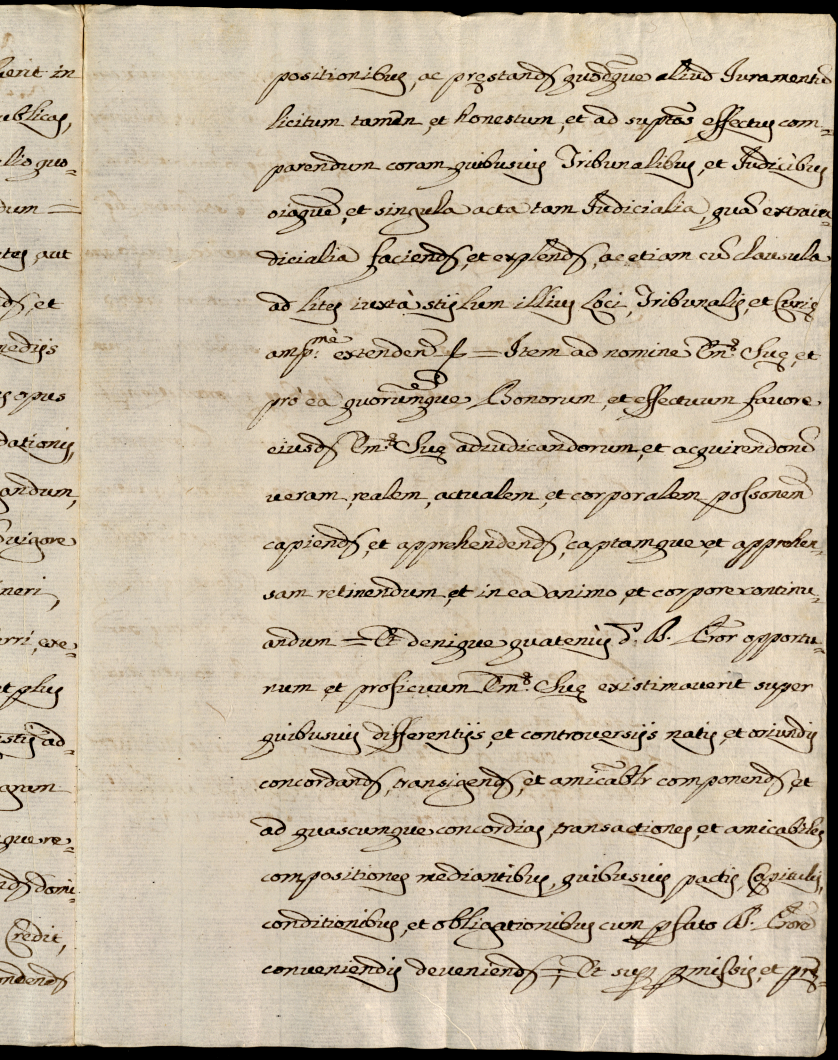 lient in
ublicas,
alio quo=
dum =
tes, aut
ds, et
medijs
s opus
dationis,
andum,
vigore
neri,
rri, exe=
et plus
stis, ad=
gnum
que re=
nds domi=
Credit,
ndends
positionibus, ac pręstands quodque aliud Iuramentũ
licitum tamen, et honestum, et ad suptos effectus com=
parendum coram quibusuis Tribunalibus, et Iudicibus
oiaque, et singula acta tam Iudicialia, quã extraiu=
dicialia faciends, et explends, ac etiam cũ clausula
ad lites iuxtà stijlum illius Loci, Tribunalis, et Curię
amp.mè extendend = Item ad nomine Emę Suę, et
prò ea quorumque Bonorum, et effectuum fauore
eiusds Emę Suę adiudicandorum, et acquirendorũ
ueram, realem, actualem, et corporalem possonem
capiends, et apprehendends, captamque, et apprehen=
sam retinendum, et in ea animo, et corpore continu=
andum = Et denique quatenùs d.s D. Pror opportu=
num, et proficuum Emę Suę existimauerit super
quibusuis differentijs, et controuersijs natis, et oriundis
concordands, transigends, et amicablr componends, et
ad quascumque concordias, transactiones, et amicabiles
compositiones mediantibus, quibusuis pactis, Capitulis,
conditionibus, et obligationibus cum pfato D. Prore
conueniendis deueniends = Et sup pmissis, et prę=